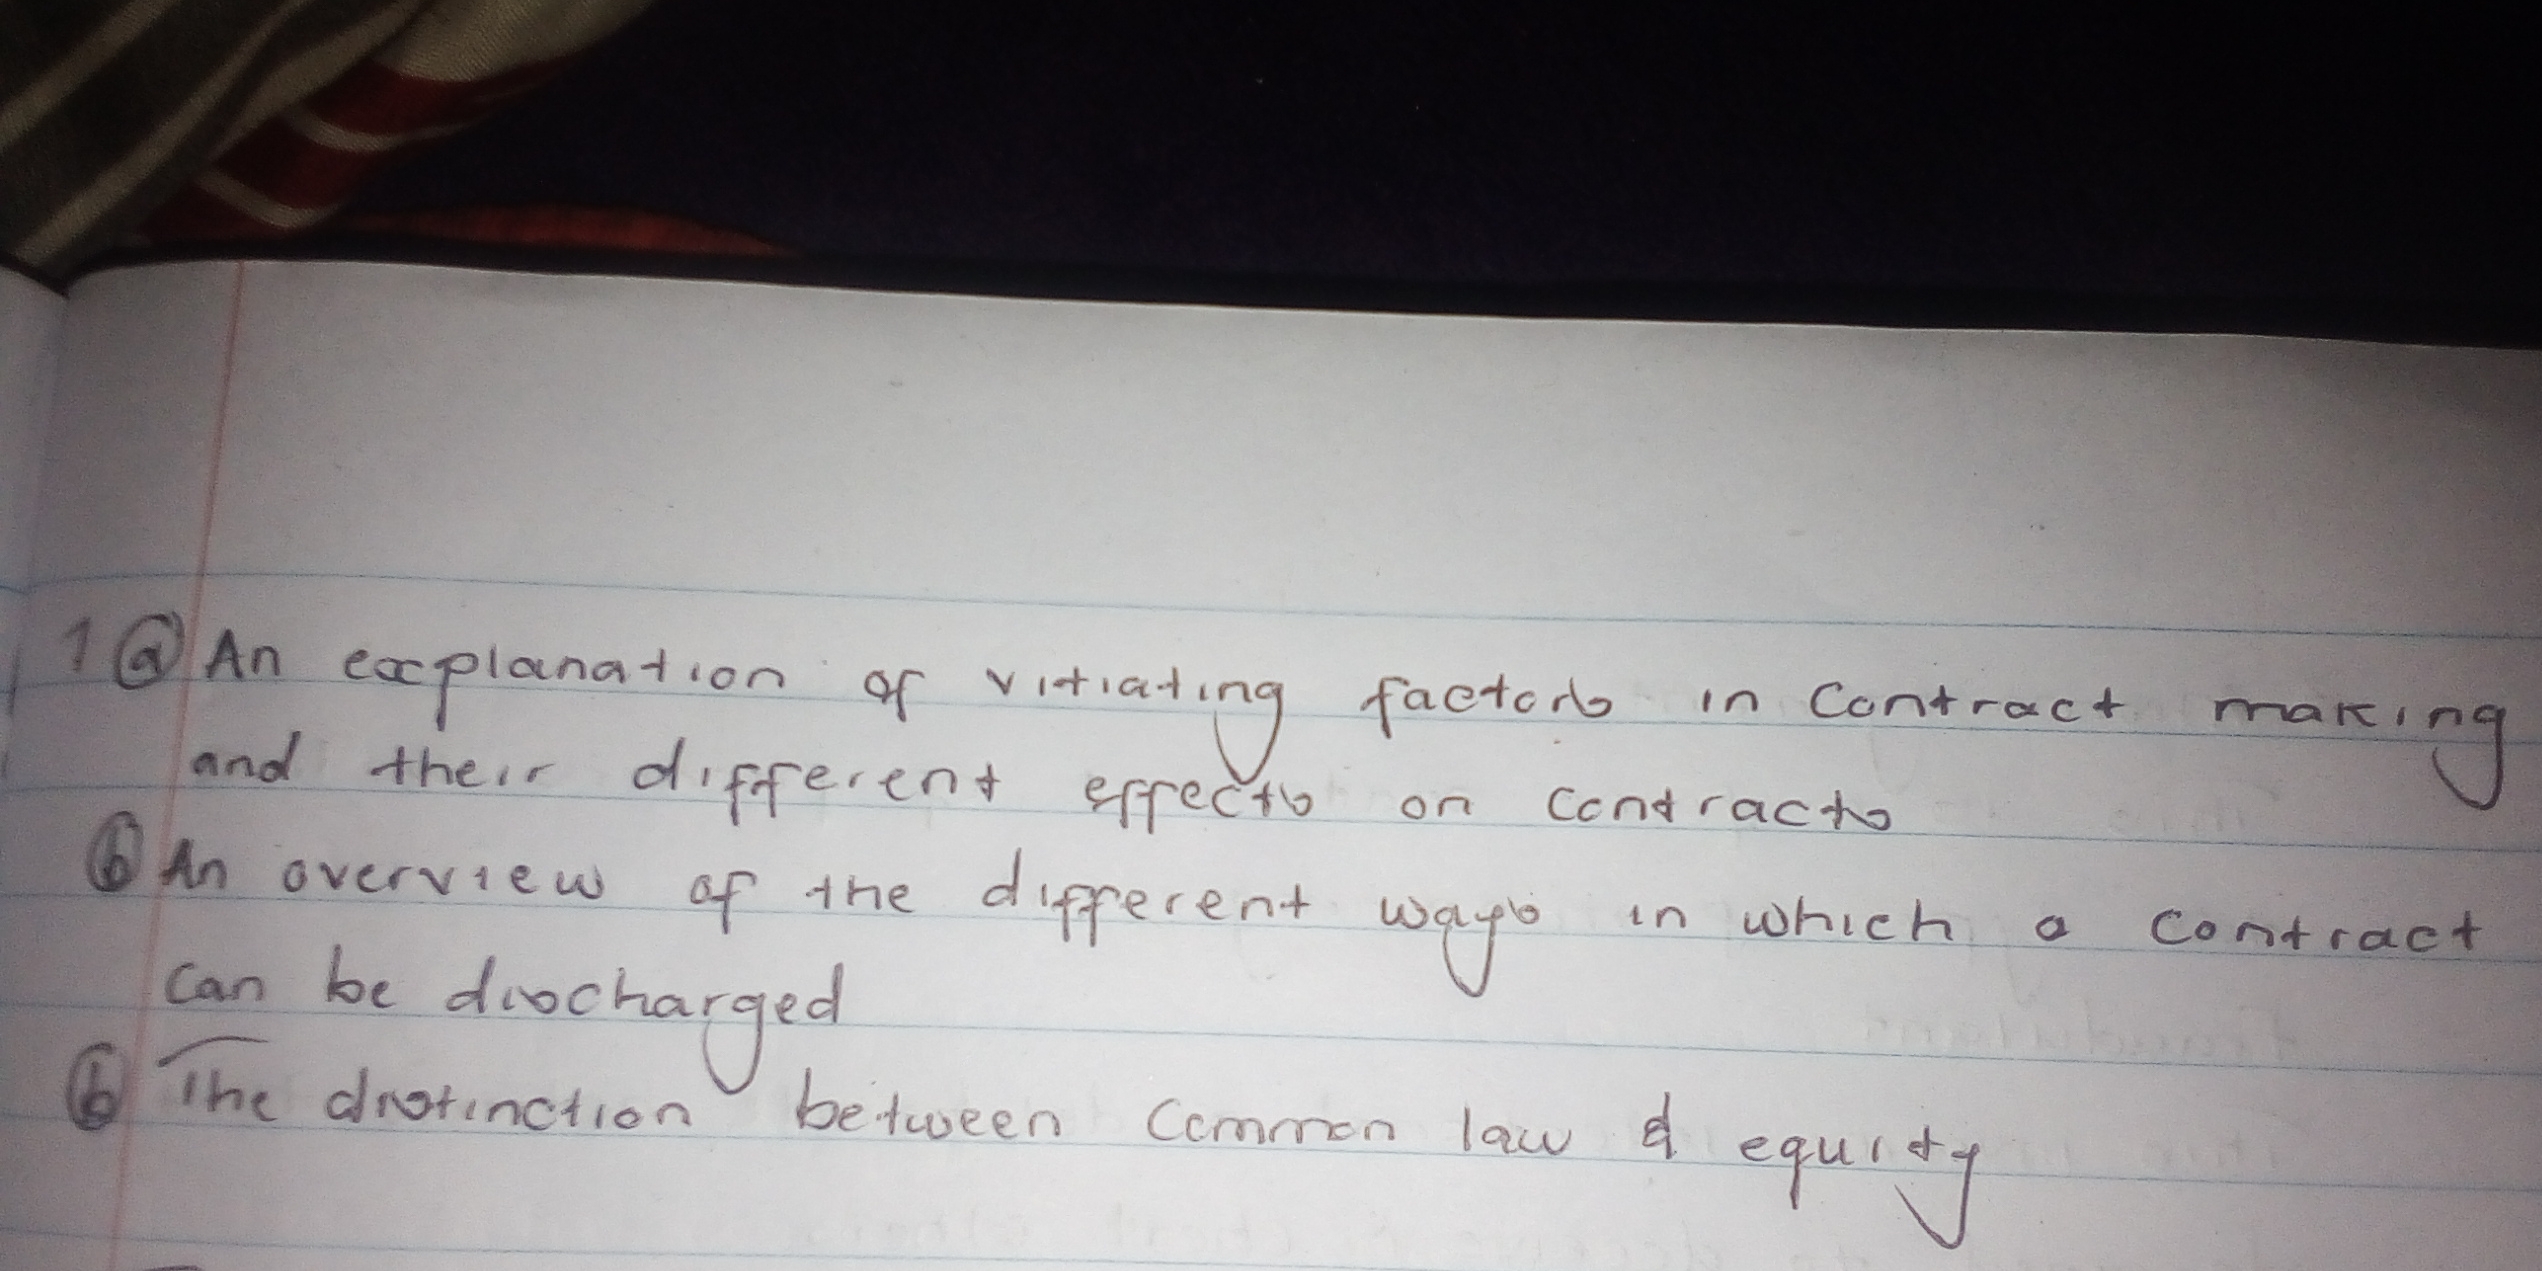 1 (a) An explanation of vitiating factors in contract making
and their different effects on contracts
(b) An overview of the different ways in which a contract
can be discharged
(b) The distinction between common law & equity